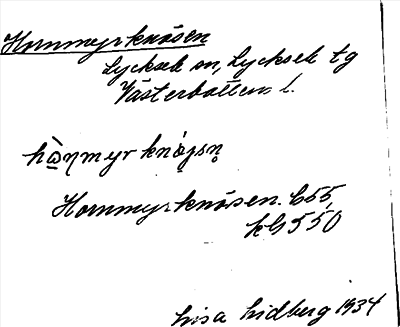 Hornmyrknösen
Lycksele sn, Lycksele tg
Västerbottens l.
hòηmyr knö̀sn̥
Hornmyrknösen. C55,
kb 550
Lisa Lidberg 1934